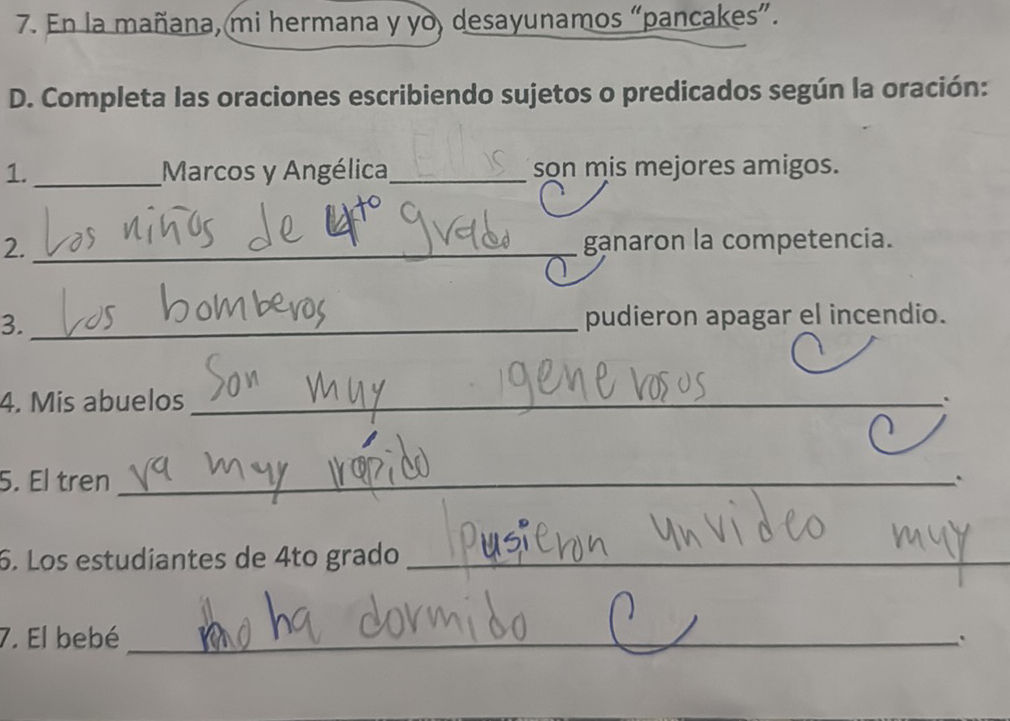 7. En la mañana, mi hermana y yo, desayunamos “pancakes”.
D. Completa las oraciones escribiendo sujetos o predicados según la oración:
1. ________Marcos y Angélica Ellos son mis mejores amigos.
2. Los niños de 4to grado ganaron la competencia.
3. Los bomberos pudieron apagar el incendio.
4. Mis abuelos Son muy generosos.
5. El tren va muy rápido.
6. Los estudiantes de 4to grado Pusieron un video muy
7. El bebé no ha dormido.